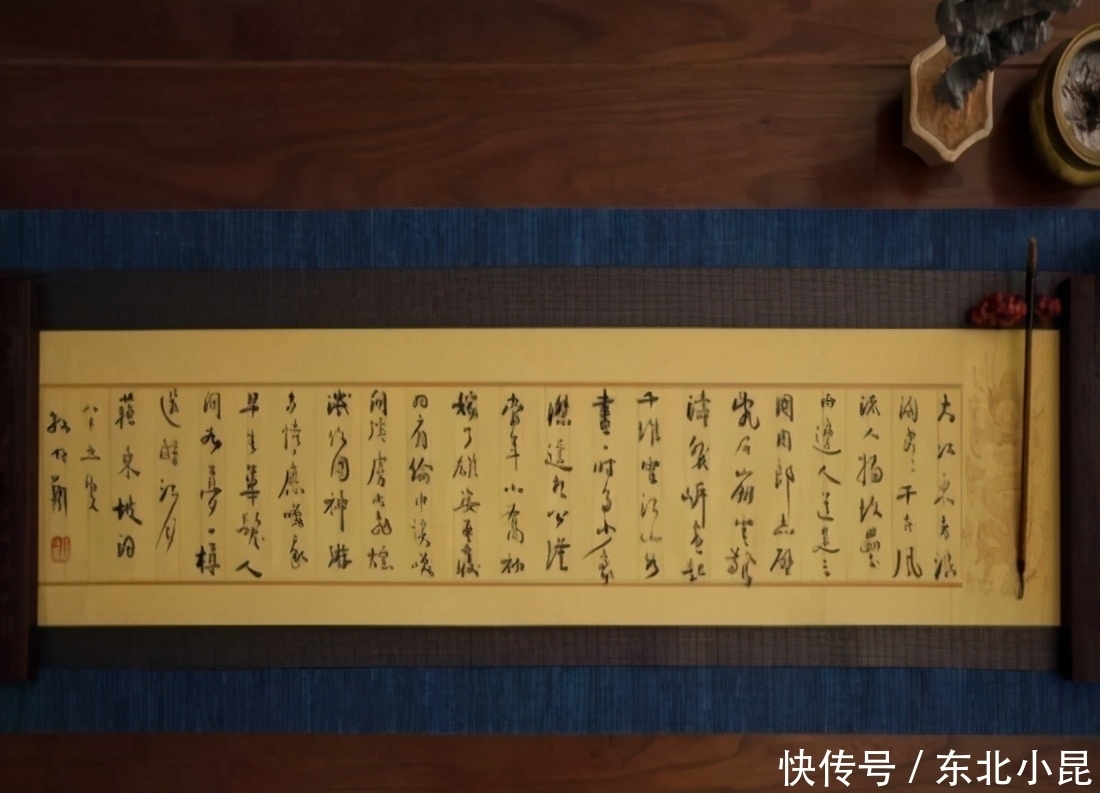 大江東去浪
淘盡千古風
流人物故壘
西邊人道是三
國周郎赤壁
亂石崩雲驚
濤裂岸卷起
千堆雪江山如
畫一時多少豪
傑遙想公瑾
當年小喬初
嫁了雄姿英發
羽扇綸巾談笑
間強虜灰飛煙
滅故國神游
多情應我
早生華髮人
間如夢一樽
還酹江月
蘇東坡詞
快传号 / 东北小昆